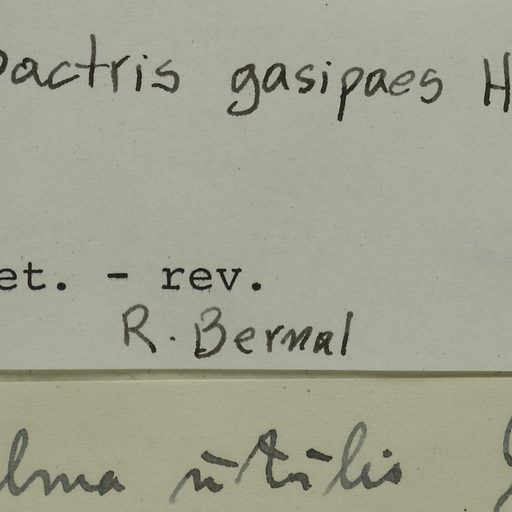 bactris gasipaes H
et. - rev.
R. Bernal
lma utilis